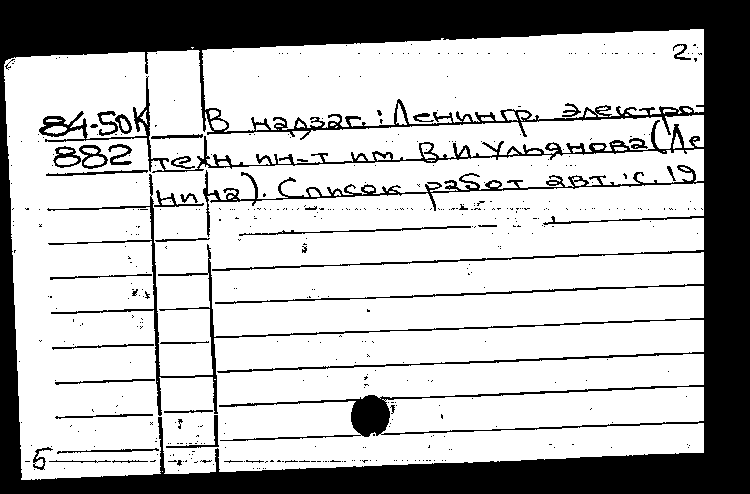 2.
84-50К В надзаг.: Ленингр. электро-
882 техн. ин-т им. В.И.Ульянова(Ле
нина). Список работ авт.: с. 19
Б